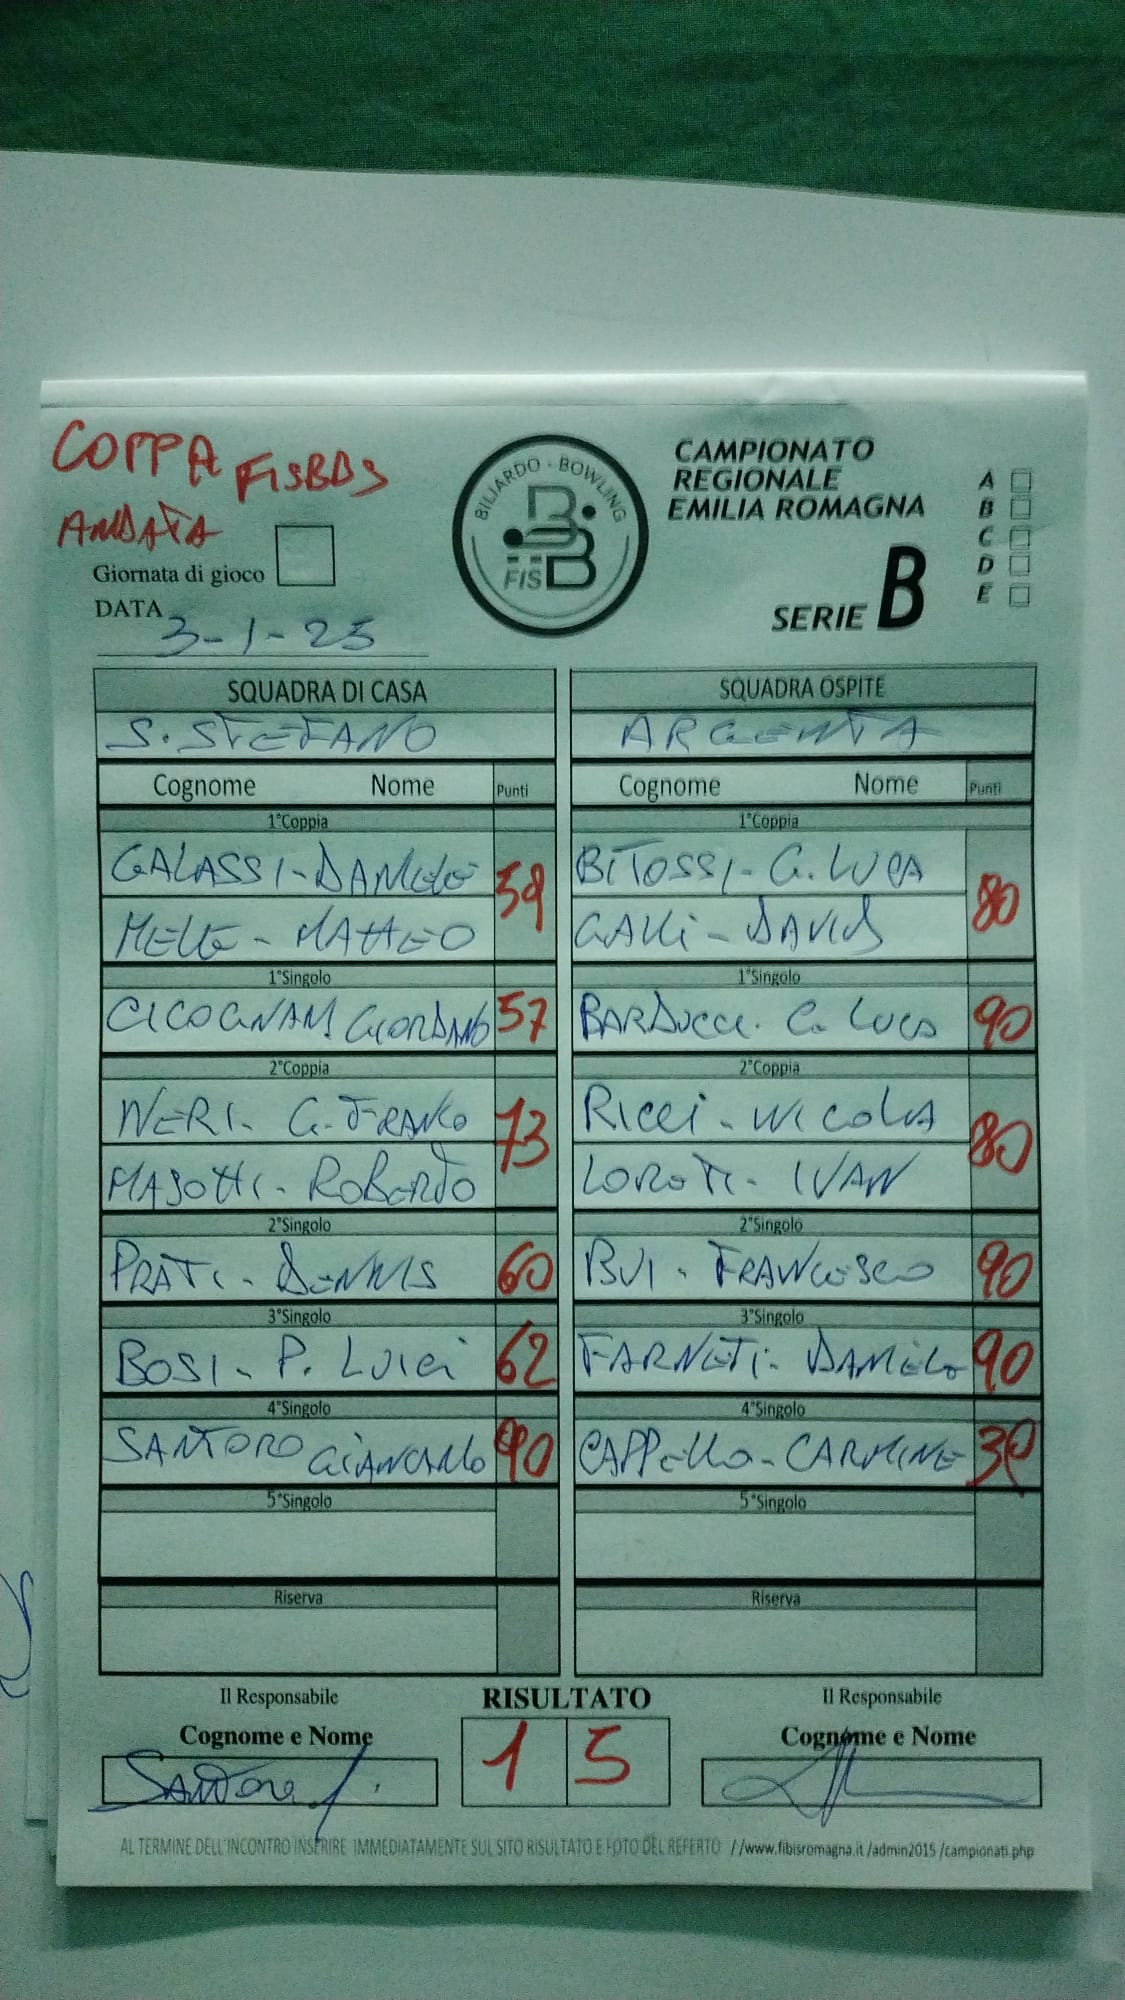 COPPA FISBBS
ANDATA
Giornata di gioco
DATA 3-1-25
BILIARDO - BOWLING
FISBB
CAMPIONATO
REGIONALE
EMILIA ROMAGNA
SERIE B
A
B
C
D
E
SQUADRA DI CASA SQUADRA OSPITE
S. STEFANO ARGENTA
Cognome Nome Punti Cognome Nome Punti
1°Coppia 1°Coppia
GALASSI - DANIELE BITOSSI - G. LUCA
59 80
MELE - MATTEO GALLI - DAVID
1°Singolo 1°Singolo
CICOGNANI GIORDANO 57 BARDUCCI. G. LUCA 90
2°Coppia 2°Coppia
NERI - G. FRANCO RICCI - NICOLA
73 80
MASOTTI - ROBERTO LOROTI - IVAN
2°Singolo 2°Singolo
PRATI - DENNIS 60 BUI - FRANCESCO 90
3°Singolo 3°Singolo
BOSI - P. LUIGI 62 FARNETI - DANIELO 90
4°Singolo 4°Singolo
SANTORO GIANCARLO 90 CAPPELLO - CARMINE 30
5°Singolo 5°Singolo
Riserva Riserva
Il Responsabile RISULTATO Il Responsabile
Cognome e Nome 1 5 Cognome e Nome
Santoro
AL TERMINE DELL'INCONTRO INSERIRE IMMEDIATAMENTE SUL SITO RISULTATO E FOTO DEL REFERTO //www.fibisromagna.it /admin2015 /campionati.php